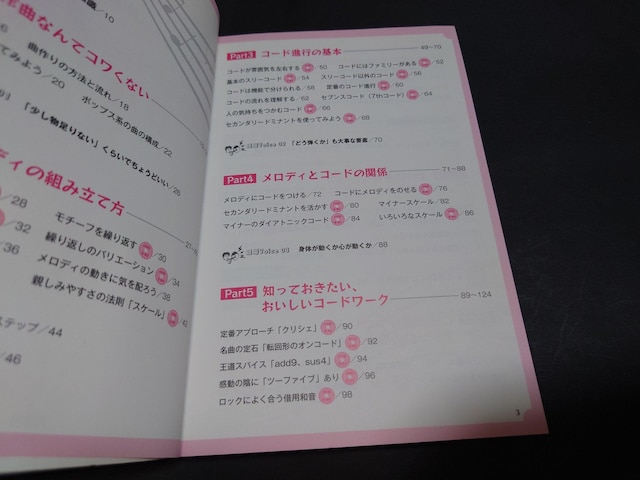 識/10
作曲なんてコワくない
曲作りの方法と流れ/18
てみよう/20
ポップス系の曲の構成/22
「少し物足りない」くらいでちょうどいい/26
ディの組み立て方
27~
/28
モチーフを繰り返す/30
/32
繰り返しのバリエーション/34
/36
メロディの動きに気を配ろう/38
親しみやすさの法則「スケール」/41
ステップ/44
/46
Part3 コード進行の基本 49~70
コードが雰囲気を左右する/50 コードにはファミリーがある/52
基本のスリーコード/54 スリーコード以外のコード/56
コードは機能で分けられる/58 定番のコード進行/60
コードの流れを理解する/62 セブンスコード(7thコード)/64
人の気持ちをつかむコード/66
セカンダリードミナントを使ってみよう/68
「どう弾くか」も大事な要素/70
Part4 メロディとコードの関係 71~88
メロディにコードをつける/72 コードにメロディをのせる/76
セカンダリードミナントを活かす/80 マイナースケール/82
マイナーのダイアトニックコード/84 いろいろなスケール/86
身体が動くか心が動くか/88
Part5 知っておきたい、
おいしいコードワーク 89~124
定番アプローチ「クリシェ」/90
名曲の定石「転回形のオンコード」/92
王道スパイス「add9、sus4」/94
感動の陰に「ツーファイブ」あり/96
ロックによく合う借用和音/98
3